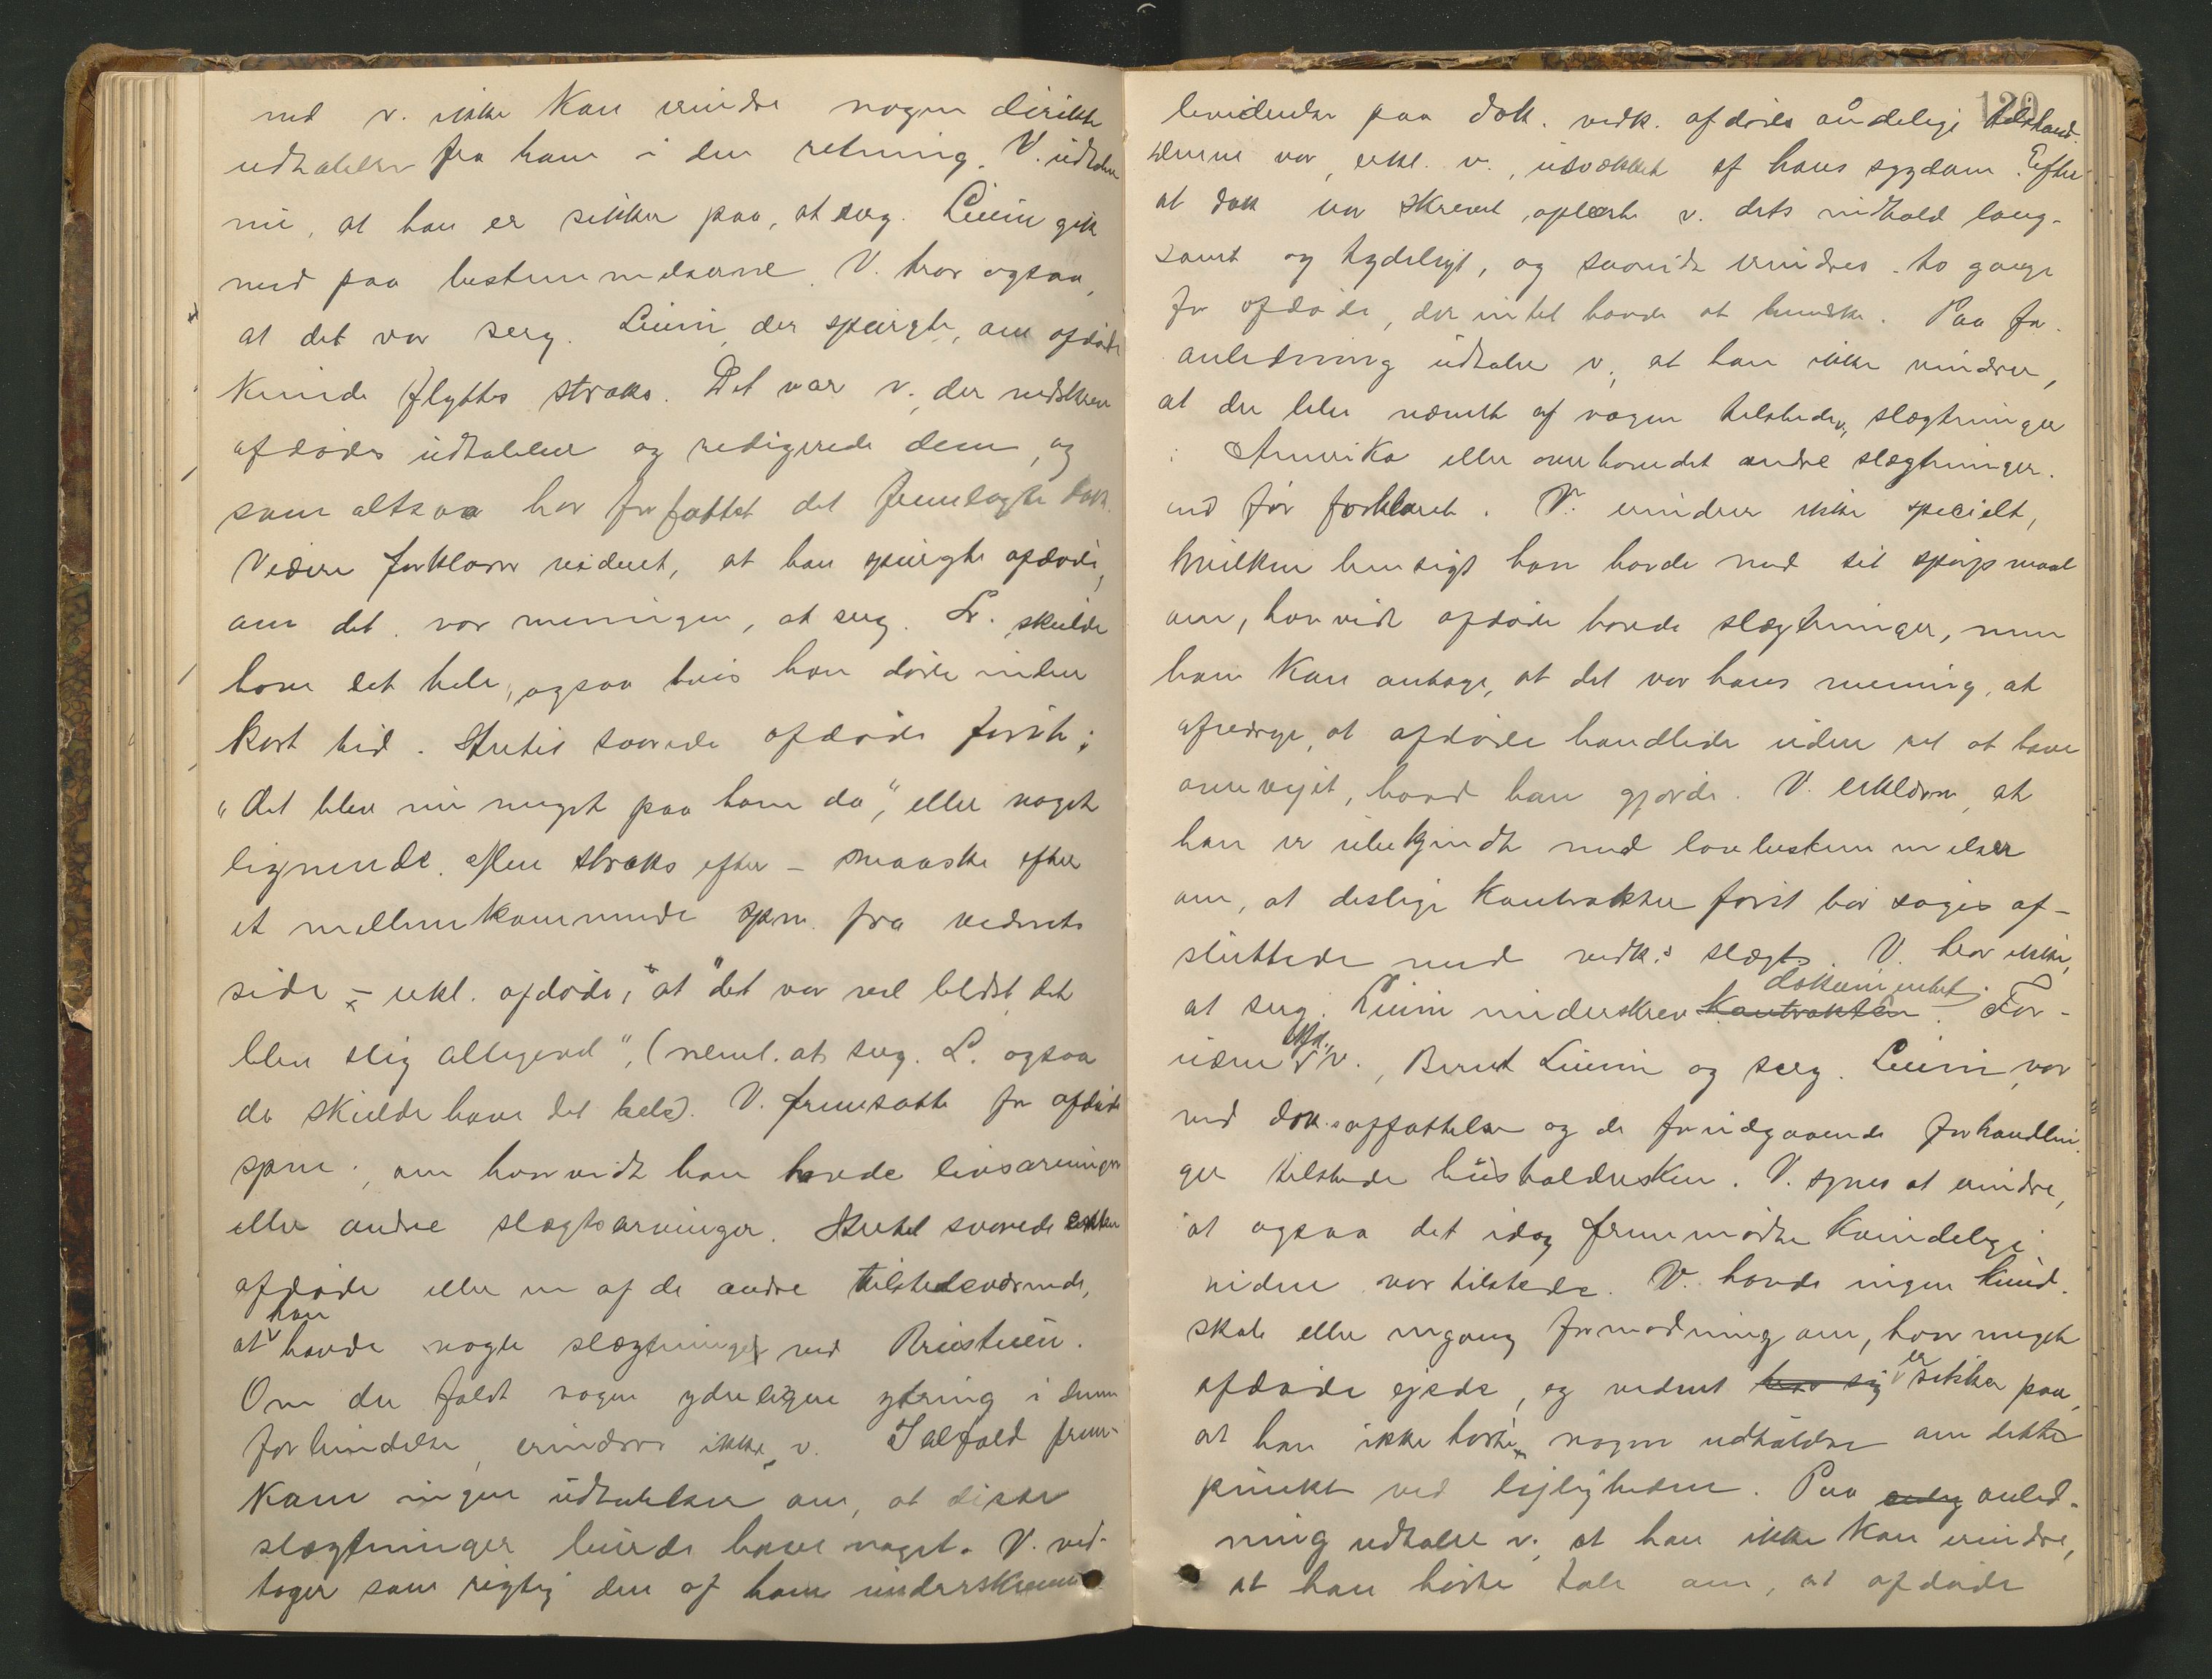 med v. ikke kan erindre nogen direkte
udtalelser fra ham i den retning. V. udtaler
nu, at han er sikker paa, at serg. Liuin gik
med paa bestemmelserne. V. tror ogsaa,
at det var serg. Liuin, der spurgte, om afdøde
kunde flyttes straks. Det var v., der nedskrev
afdødes udtalelser og redigerede dem, og
som altsaa har forfattet det fremlagte dok.
Videre forklarer vidnet, at han spurgte afdøde,
om det var meningen, at serg. L. skulde
have det hele, ogsaa hvis han døde inden
kort tid. Hertil svarede afdøde først:
"det blev nu meget paa ham da", eller noget
lignende. Men straks efter – maaske efter
et mellemkommende spm. fra vidnets
side – erkl. afdøde, "at det var vel bedst, det
blev slig alligevel", (neml. at serg. L. ogsaa
da skulde have det hele). V. fremsatte for afdøde
spm., om hvorvidt han havde livsarvinger
eller andre slægtsarvinger. Hertil svarede enten
afdøde eller en af de andre tilstedeværende,
at han havde nogle slægtninger ved Rustuen.
Om der faldt nogen yderligere ytring i denne
forbindelse, erindrer ikke v. Ialfald frem-
kom ingen udtalelser om, at disse
slægtninger burde have noget. V. ved-
tager som rigtig den af ham underskrevne
130
bevidnelse paa dok. vedk. afdødes åndelige tilstand.
Denne var, erkl. v., usvækket af hans sygdom. Efter
at dok var skrevet, oplæste v. dets indhold lang-
samt og tydeligt, og saavidt erindres to gange
for afdøde, der intet havde at bemærke. Paa for-
anledning udtaler v., at han ikke erindrer,
at der blev nævnt af nogen tilstedev. slægtninger
i Amerika eller overhovedet andre slægtninger
end før forklaret. V. erindrer ikke specielt,
hvilken hensigt han havde med sit spørgsmaal
om, hvorvidt afdøde havde slægtninger, men
han kan antage, at det var hans mening, at
afværge, at afdøde handlede uden ret at have
overvejet, hvad han gjorde. V. erklærer, at
han er ubekjendt med lovbestemmelser
om, at deslige kontrakter først bør søges af-
sluttede med vedk.s slægt. V. tror ikke,
at serg. Liuin underskrev kontrakten dokumentet. For-
uden afd., v., Bernt Liuin og serg. Liuin var
ved dok.s affattelse og de forudgaaende forhandlin-
ger tilstede husholdersken. V. synes at erindre,
at ogsaa det idag fremmødte kvindelige
vidne var tilstede. V. havde ingen kund-
skab eller engang formodning om, hvor meget
afdøde ejede, og vidnet er sikker paa,
at han ikke hørte nogen udtalelse om dette
punkt ved lejligheden. Paa anled-
ning udtaler v., at han ikke kan erindre,
at han hørte tale om, at afdøde